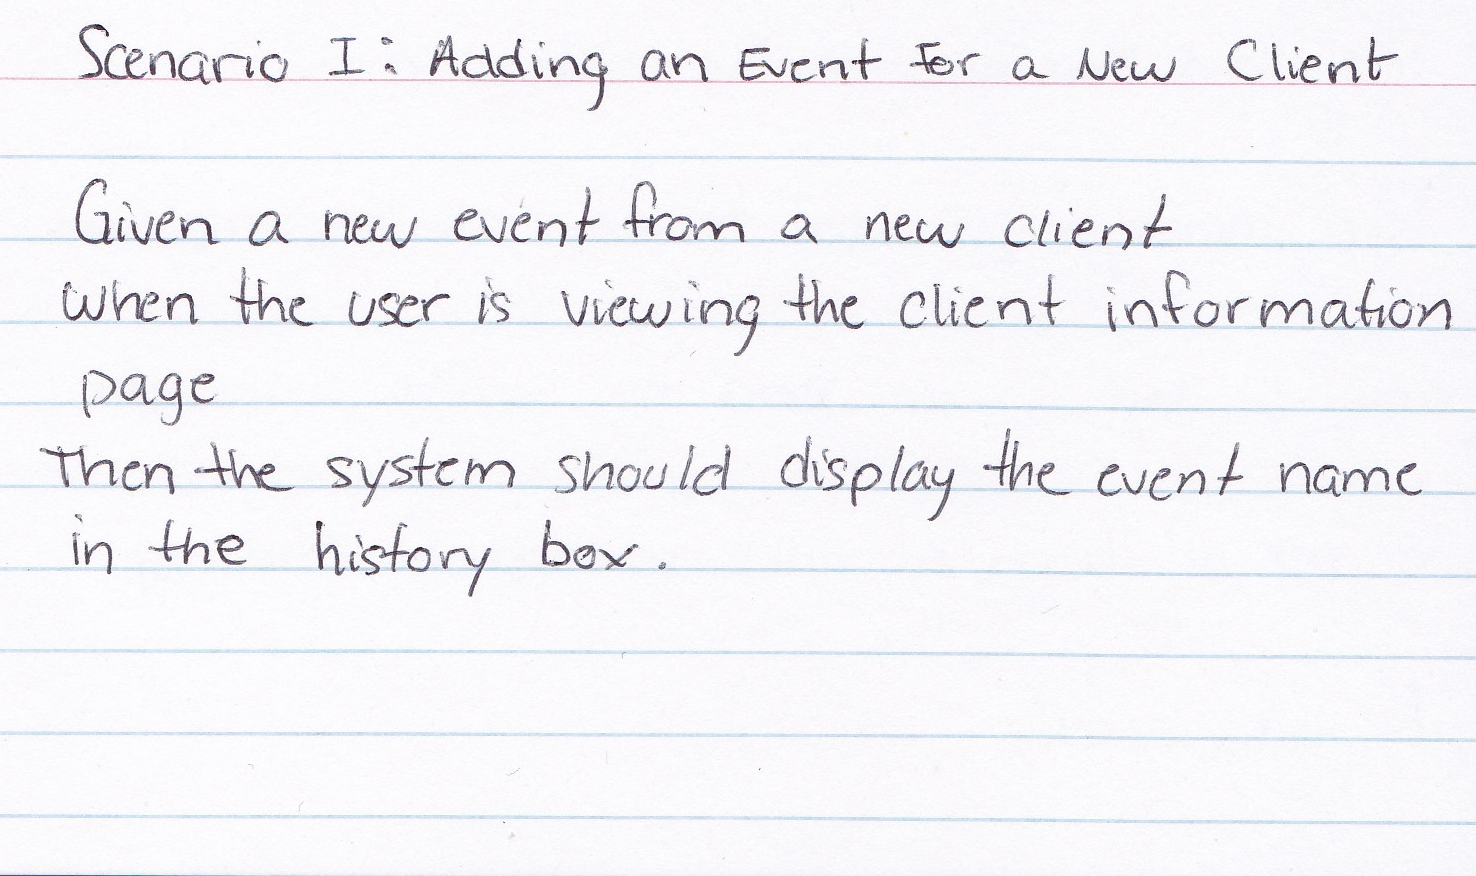 Scenario I: Adding an Event For a New Client
Given a new event from a new client
when the user is viewing the client information
page
Then the system should display the event name
in the history box.